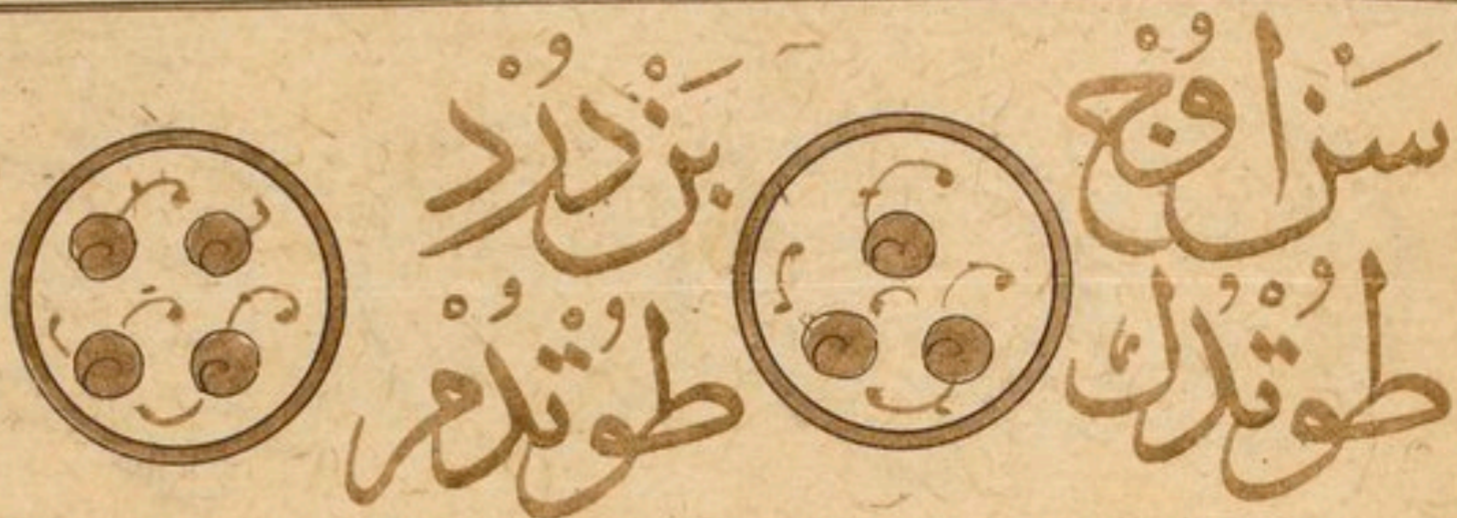 سَنْ اوُجْ
طُوتْدُك
بَنْ دُرْد
طُوتْدُمْ